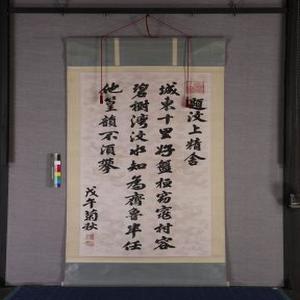 題汶上精舍
城東十里好盤桓窈窕村容
碧樹灣汶水知為齊魯半任
他韻不須攀
戊午菊秋